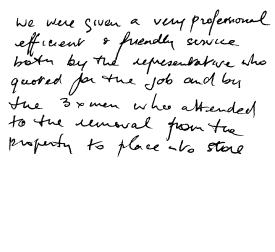 we were given a very professional
efficient & friendly service
both by the representative who
quoted for the job and by
the 3 x men who attended
to the removal from the
property to place into store